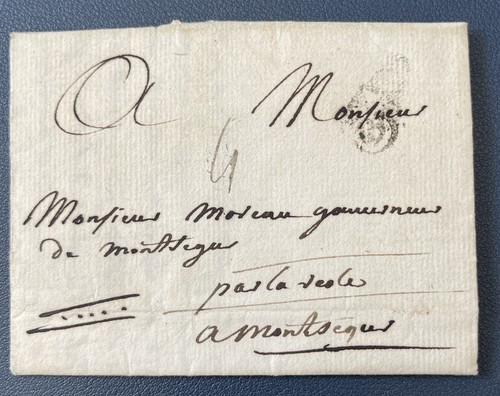 A Monsieur
4
Monsieur moreau gouuerneur
de montsegur
par la reole
a montsegur